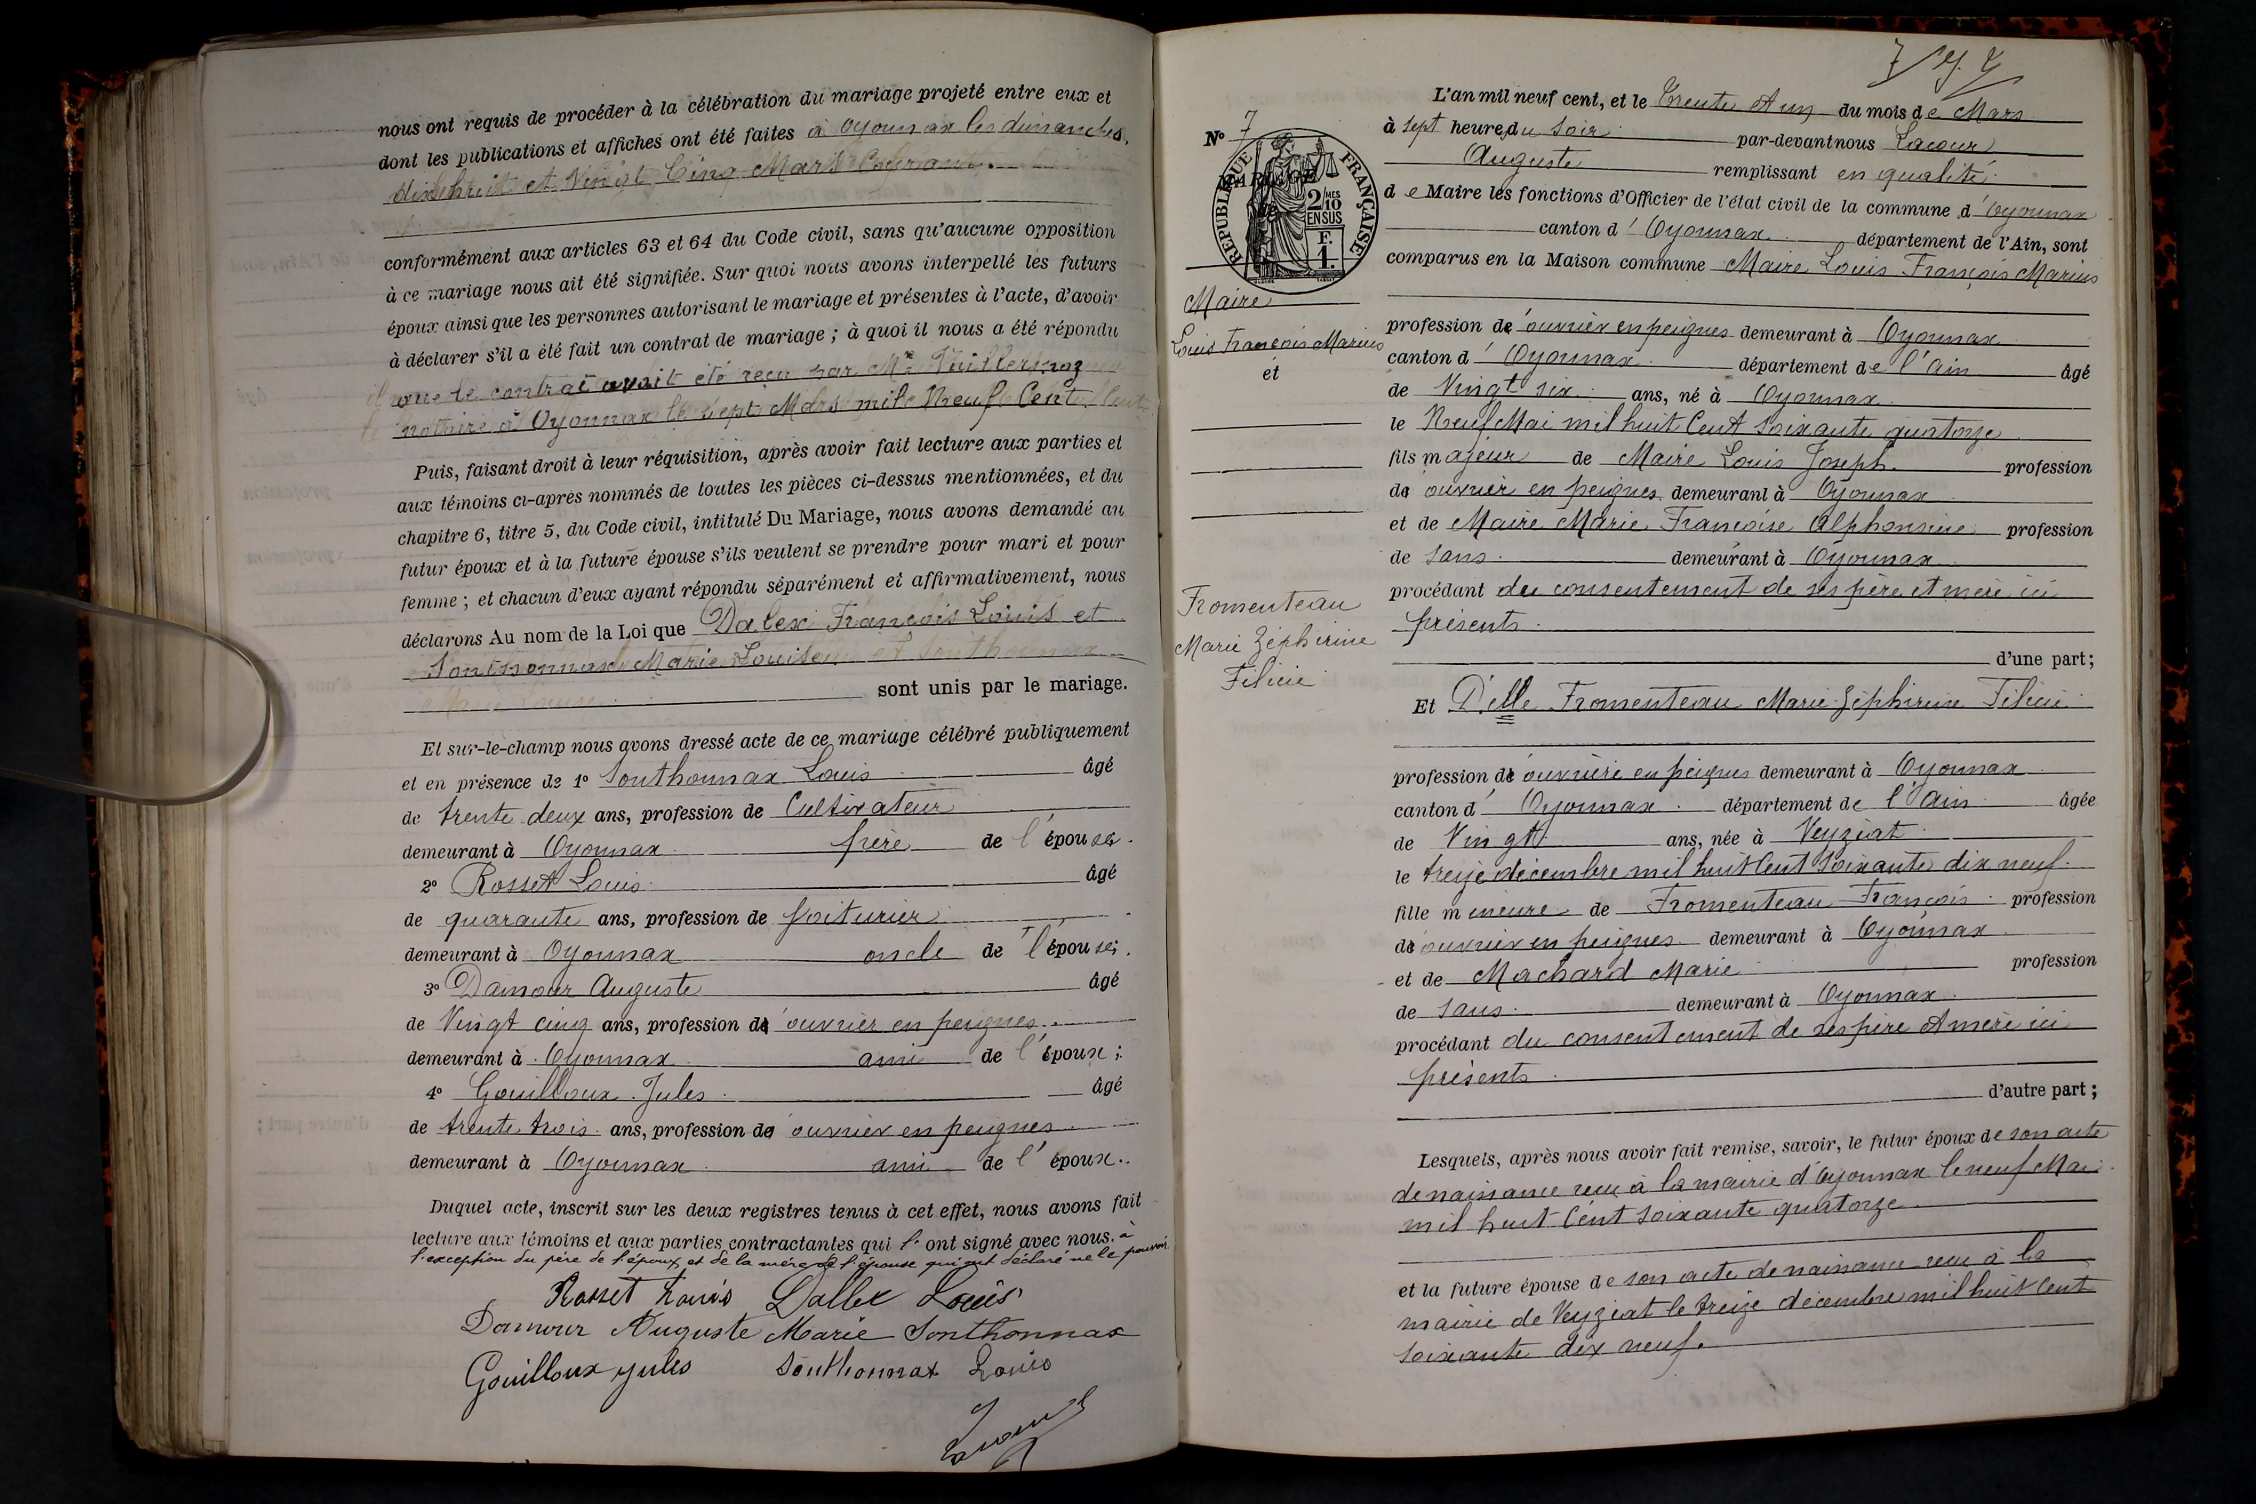 nous ont requis de procéder à la célébration du mariage projeté entre eux et
dont les publications et affiches ont été faites à Oyonnax les dimanches,
dix huit et Vingt Cinq Mars Courant.
conformément aux articles 63 et 64 du Code civil, sans qu'aucune opposition
à ce mariage nous ait été signifiée. Sur quoi nous avons interpellé les futurs
époux ainsi que les personnes autorisant le mariage et présentes à l'acte, d'avoir
à déclarer s'il a été fait un contrat de mariage ; à quoi il nous a été répondu
que le contrat avait été reçu par Me Vuillermoz
notaire à Oyonnax le sept Mars mil Neuf Cent
Puis, faisant droit à leur réquisition, après avoir fait lecture aux parties et
aux témoins ci-après nommés de toutes les pièces ci-dessus mentionnées, et du
chapitre 6, titre 5, du Code civil, intitulé Du Mariage, nous avons demandé au
futur époux et à la future épouse s'ils veulent se prendre pour mari et pour
femme ; et chacun d'eux ayant répondu séparément et affirmativement, nous
déclarons Au nom de la Loi que Dalex François Louis et
Sonthonnax Marie Louise
sont unis par le mariage.
Et sur-le-champ nous avons dressé acte de ce mariage célébré publiquement
et en présence de 1o Sonthonnax Louis âgé
de trente deux ans, profession de Cultivateur
demeurant à Oyonnax frère de l'épouse.
2o Rosset Louis âgé
de quarante ans, profession de Voiturier
demeurant à Oyonnax oncle de l'épouse;
3o Damour Auguste âgé
de Vingt cinq ans, profession d'ouvrier en peignes
demeurant à Oyonnax ami de l'époux;
4o Gouilloux Jules âgé
de trente trois ans, profession d'ouvrier en peignes
demeurant à Oyonnax ami de l'époux.
Duquel acte, inscrit sur les deux registres tenus à cet effet, nous avons fait
lecture aux témoins et aux parties contractantes qui l'ont signé avec nous. à
l'exception du père de l'époux et de la mère de l'épouse qui ont déclaré ne le pouvoir
Rosset Louis Dallex Louis
Damour Auguste Marie Sonthonnax
Gouilloux Jules Sonthonnax Louis
Lacour
7
No 7
MARIAGE
RÉPUBLIQUE FRANÇAISE
2/10 MES
EN SUS
F.
1.
Maire
Louis François Marius
et
Fromenteau
Marie Zéphirine
Félicie
L'an mil neuf cent, et le Trente et un du mois de Mars
à sept heure du soir par-devant nous Lacour
Auguste remplissant en qualité
de Maire les fonctions d'Officier de l'état civil de la commune d'Oyonnax
canton d'Oyonnax département de l'Ain, sont
comparus en la Maison commune Maire Louis François Marius
profession d'ouvrier en peignes demeurant à Oyonnax
canton d'Oyonnax département de l'Ain âgé
de Vingt six ans, né à Oyonnax
le Neuf Mai mil huit Cent soixante quatorze
fils majeur de Maire Louis Joseph profession
d'ouvrier en peignes demeurant à Oyonnax
et de Maire Marie Françoise Alphonsine profession
de sans demeurant à Oyonnax
procédant du consentement de ses père et mère ici
présents.
d'une part;
Et Delle Fromenteau Marie Zéphirine Félicie
profession d'ouvrière en peignes demeurant à Oyonnax
canton d'Oyonnax département de l'Ain âgée
de Vingt ans, née à Veyziat
le treize décembre mil huit Cent soixante dix neuf.
fille mineure de Fromenteau François profession
d'ouvrier en peignes demeurant à Oyonnax
et de Machard Marie profession
de sans demeurant à Oyonnax
procédant du consentement de ses père et mère ici
présents
d'autre part;
Lesquels, après nous avoir fait remise, savoir, le futur époux de son acte
de naissance reçu à la mairie d'Oyonnax le neuf Mai
mil huit Cent soixante quatorze
et la future épouse de son acte de naissance reçu à la
mairie de Veyziat le treize décembre mil huit Cent
soixante dix neuf.